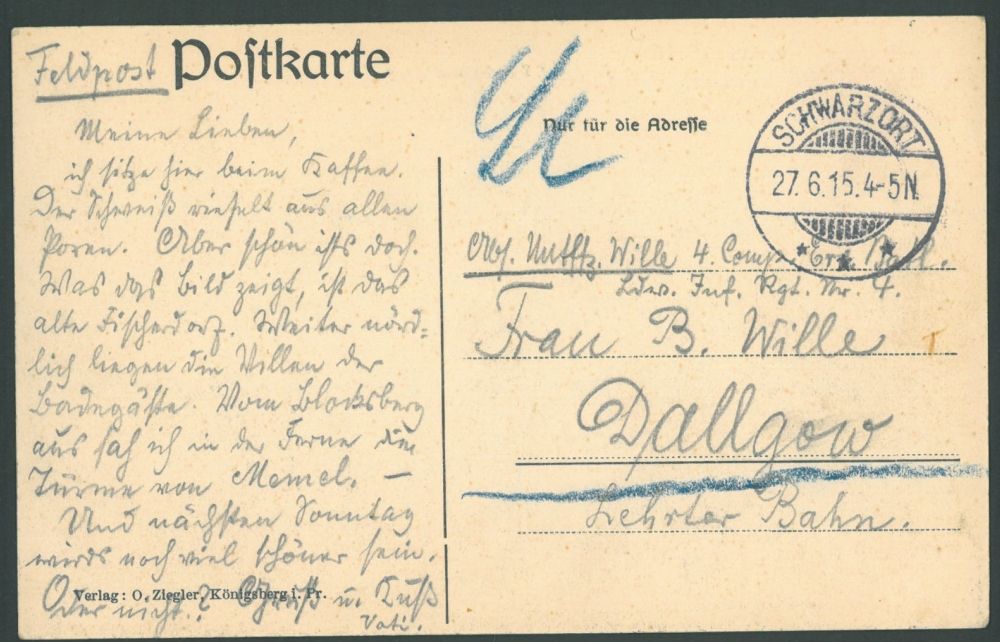 Feldpost Postkarte
Meine Lieben,
ich sitze hier beim Kaffee.
Der Schweiß rieselt aus allen
Poren. Aber schön ists doch.
Was das Bild zeigt, ist das
alte Fischerdorf. Weiter nörd-
lich liegen die Villen der
Badegäste. Vom Blocksberg
aus sah ich in der Ferne die
Türme von Memel. —
Und nächsten Sonntag
wirds noch viel schöner sein.
Oder nicht? Gruß u. Kuß
Vati.
Verlag: O. Ziegler, Königsberg i. Pr.
Nur für die Adresse
SCHWARZORT
27.6.15.4-5N.
Abs. Wille 4. Comp. Ers. Batl.
Ldw. Inf. Rgt. Nr. 4.
Frau B. Wille
Dallgow
Lehrter Bahn.